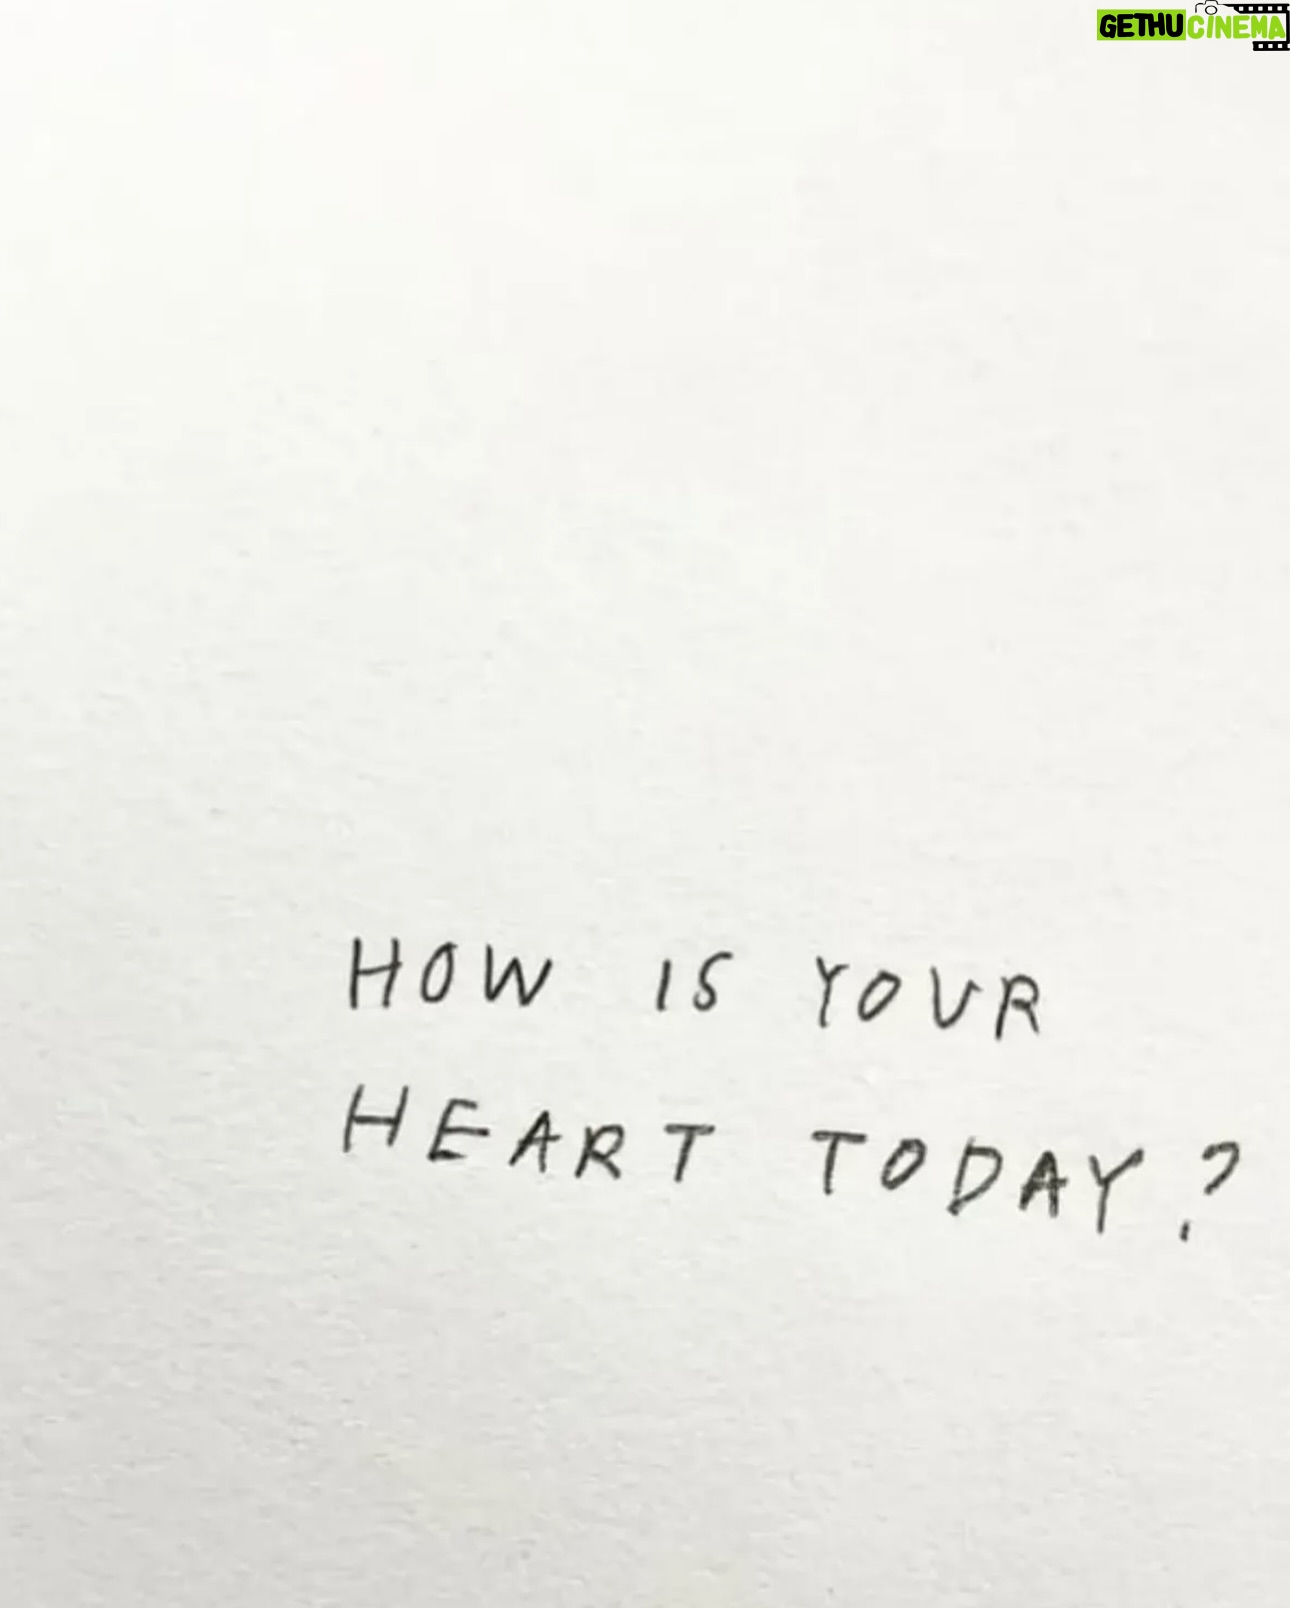 GETHU CINEMA
HOW IS YOUR
HEART TODAY?